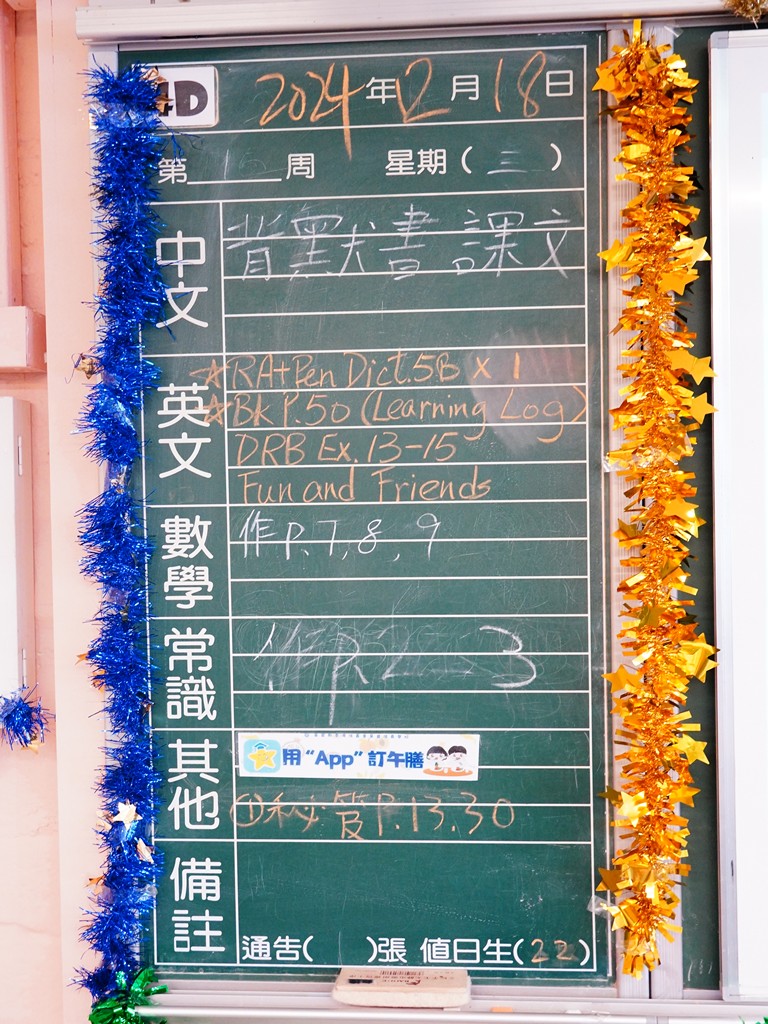 4D 2024年12月18日
第 15 周 星期(三)
中文
背默書 課文
英文
☆RA+Pen Dict.5B x 1
☆Bk P.50 (Learning Log)
DRB Ex.13-15
Fun and Friends
數學
作P.7,8,9
常識
作P.2-3
其他
用“App”訂午膳
①秘笈P.13,30
備註
通告( )張 值日生(22)